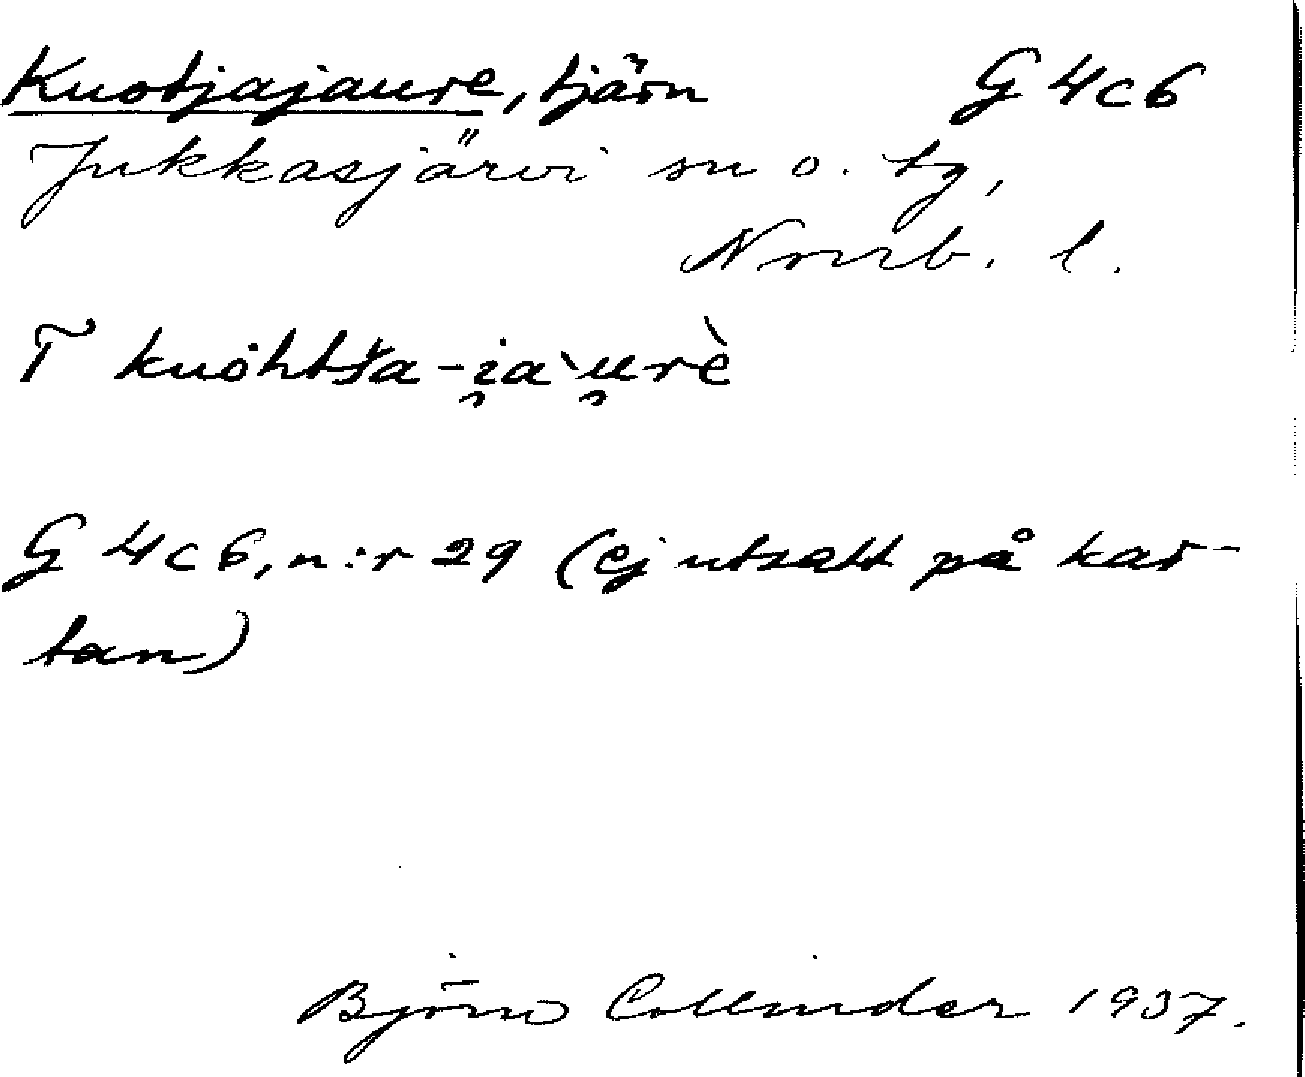 Kuotjajaure, tjärn G 4c6
Jukkasjärvi sn o. tg,
Norrb. l.
T kuȯhtš́a-i̯aˋu̯rè
G 4c6, n:r 29 (ej utsatt på kar-
tan)
Björn Collinder 1937.